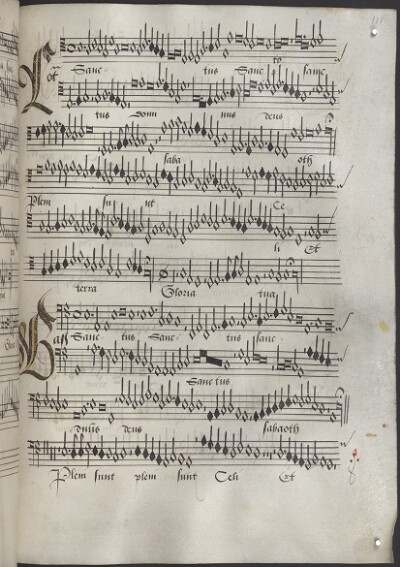 Sanc- tus Sanc- to sanc
tus Domi nus deus
saba oth
Plem su nt Ce
li Et
terra Gloria tua
Bass Sanc- tus Sanc- tus sanc-
Sanctus
dnūs deus sabaoth
Plem sunt plem sunt Celi Et